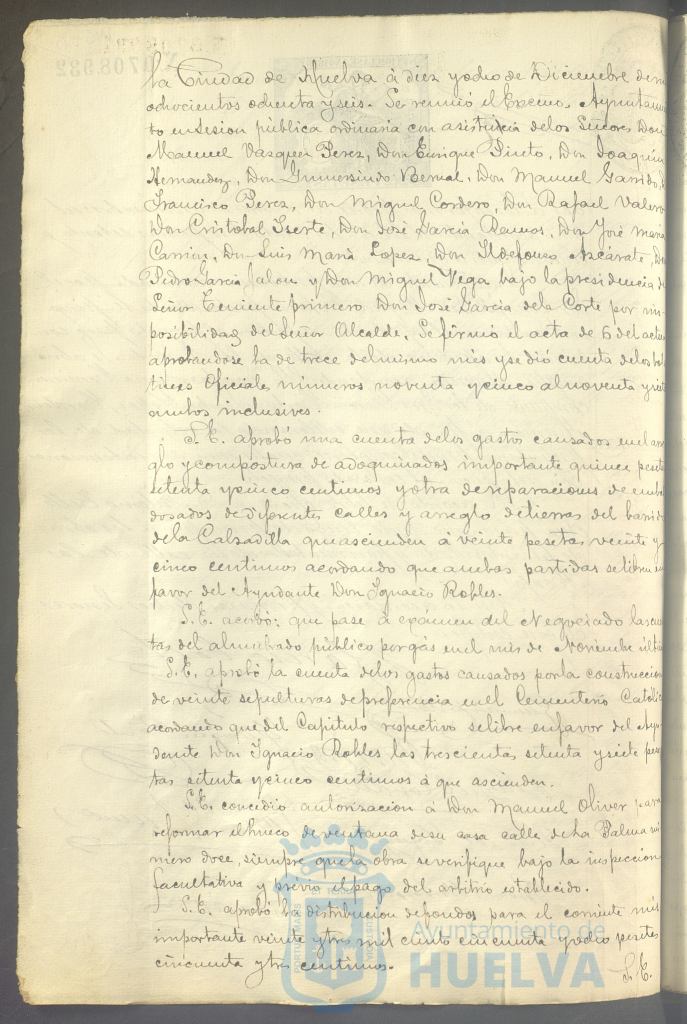 0708932
la Ciudad de Huelva á diez y ocho de Diciembre de mil
ochocientos ochenta y seis. Se reunió el Excmo. Ayuntamien-
to en sesion pública ordinaria con asistencia de los Señores Don
Manuel Vazquez Perez, Don Enrique Pinto, Don Joaquin
Hernandez, Don Gumersindo Bernal, Don Manuel Garrido, D
Francisco Perez, Don Miguel Cordero, Don Rafael Valero
Don Cristobal Iserte, Don José Garcia Ramos, Don José Maria
Carrion, Don Luis Maria Lopez, Don Ildefonso Azcárate, Don
Pedro Garcia Jalon y Don Miguel Vega bajo la presidencia del
Señor Teniente primero Don José Garcia de la Corte por im-
posibilidad del Señor Alcalde. Se firmó el acta de 6 del actual
aprobandose la de trece del mismo mes y se dió cuenta de los bole
tines Oficiales números noventa y cinco al noventa y siete
ambos inclusives.
S. E. aprobó una cuenta de los gastos causados en el arre
glo y compostura de adoquinados importante quince pesetas
setenta y cinco centimos y otra de reparaciones de emba
dosados de diferentes calles y arreglo de tierras del barrio
de la Calzadilla que ascienden á veinte pesetas veinte y
cinco centimos acordando que ambas partidas se libren en
favor del Ayudante Don Ignacio Robles.
S. E. acordó: que pase á exámen del Negociado las cuen
tas del alumbrado público por gás en el mes de Noviembre último
S. E. aprobó la cuenta de los gastos causados por la construccion
de veinte sepulturas de preferencia en el Cementerio Católico
acordando que del Capitulo respectivo se libre en favor del Ayu-
dante Don Ignacio Robles las trescientas setenta y siete pese
tas setenta y cinco centimos á que ascienden.
S. E. concedió autorizacion á Don Manuel Oliver para
reformar el hueco de ventana de su casa calle de La Palma nú
mero doce, siempre que la obra se verifique bajo la inspeccion
facultativa y prévio el pago del arbitrio establecido.
S. E. aprobó la distribucion de fondos para el corriente mes
importante veinte y tres mil ciento cincuenta y ocho pesetas
cincuenta y tres centimos.
S. E.
Ayuntamiento de
HUELVA